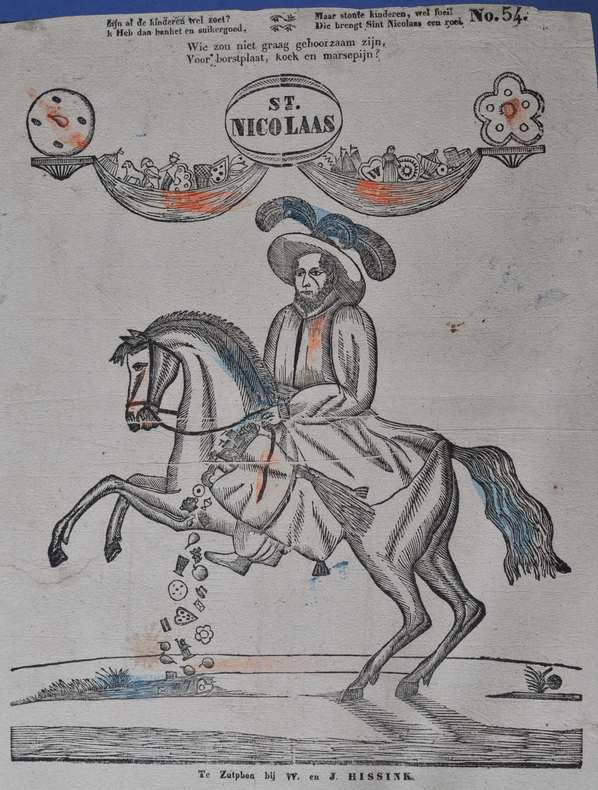 Zijn al de kinderen wel zoet?
k Heb dan banket en suikergoed,
Maar stoute kinderen, wel foei!
Die brengt Sint Nicolaas een roei.
No. 54.
Wie zou niet graag gehoorzaam zijn,
Voor borstplaat, koek en marsepijn?
ST.
NICOLAAS
W
Te Zutphen bij W. en J. HISSINK.